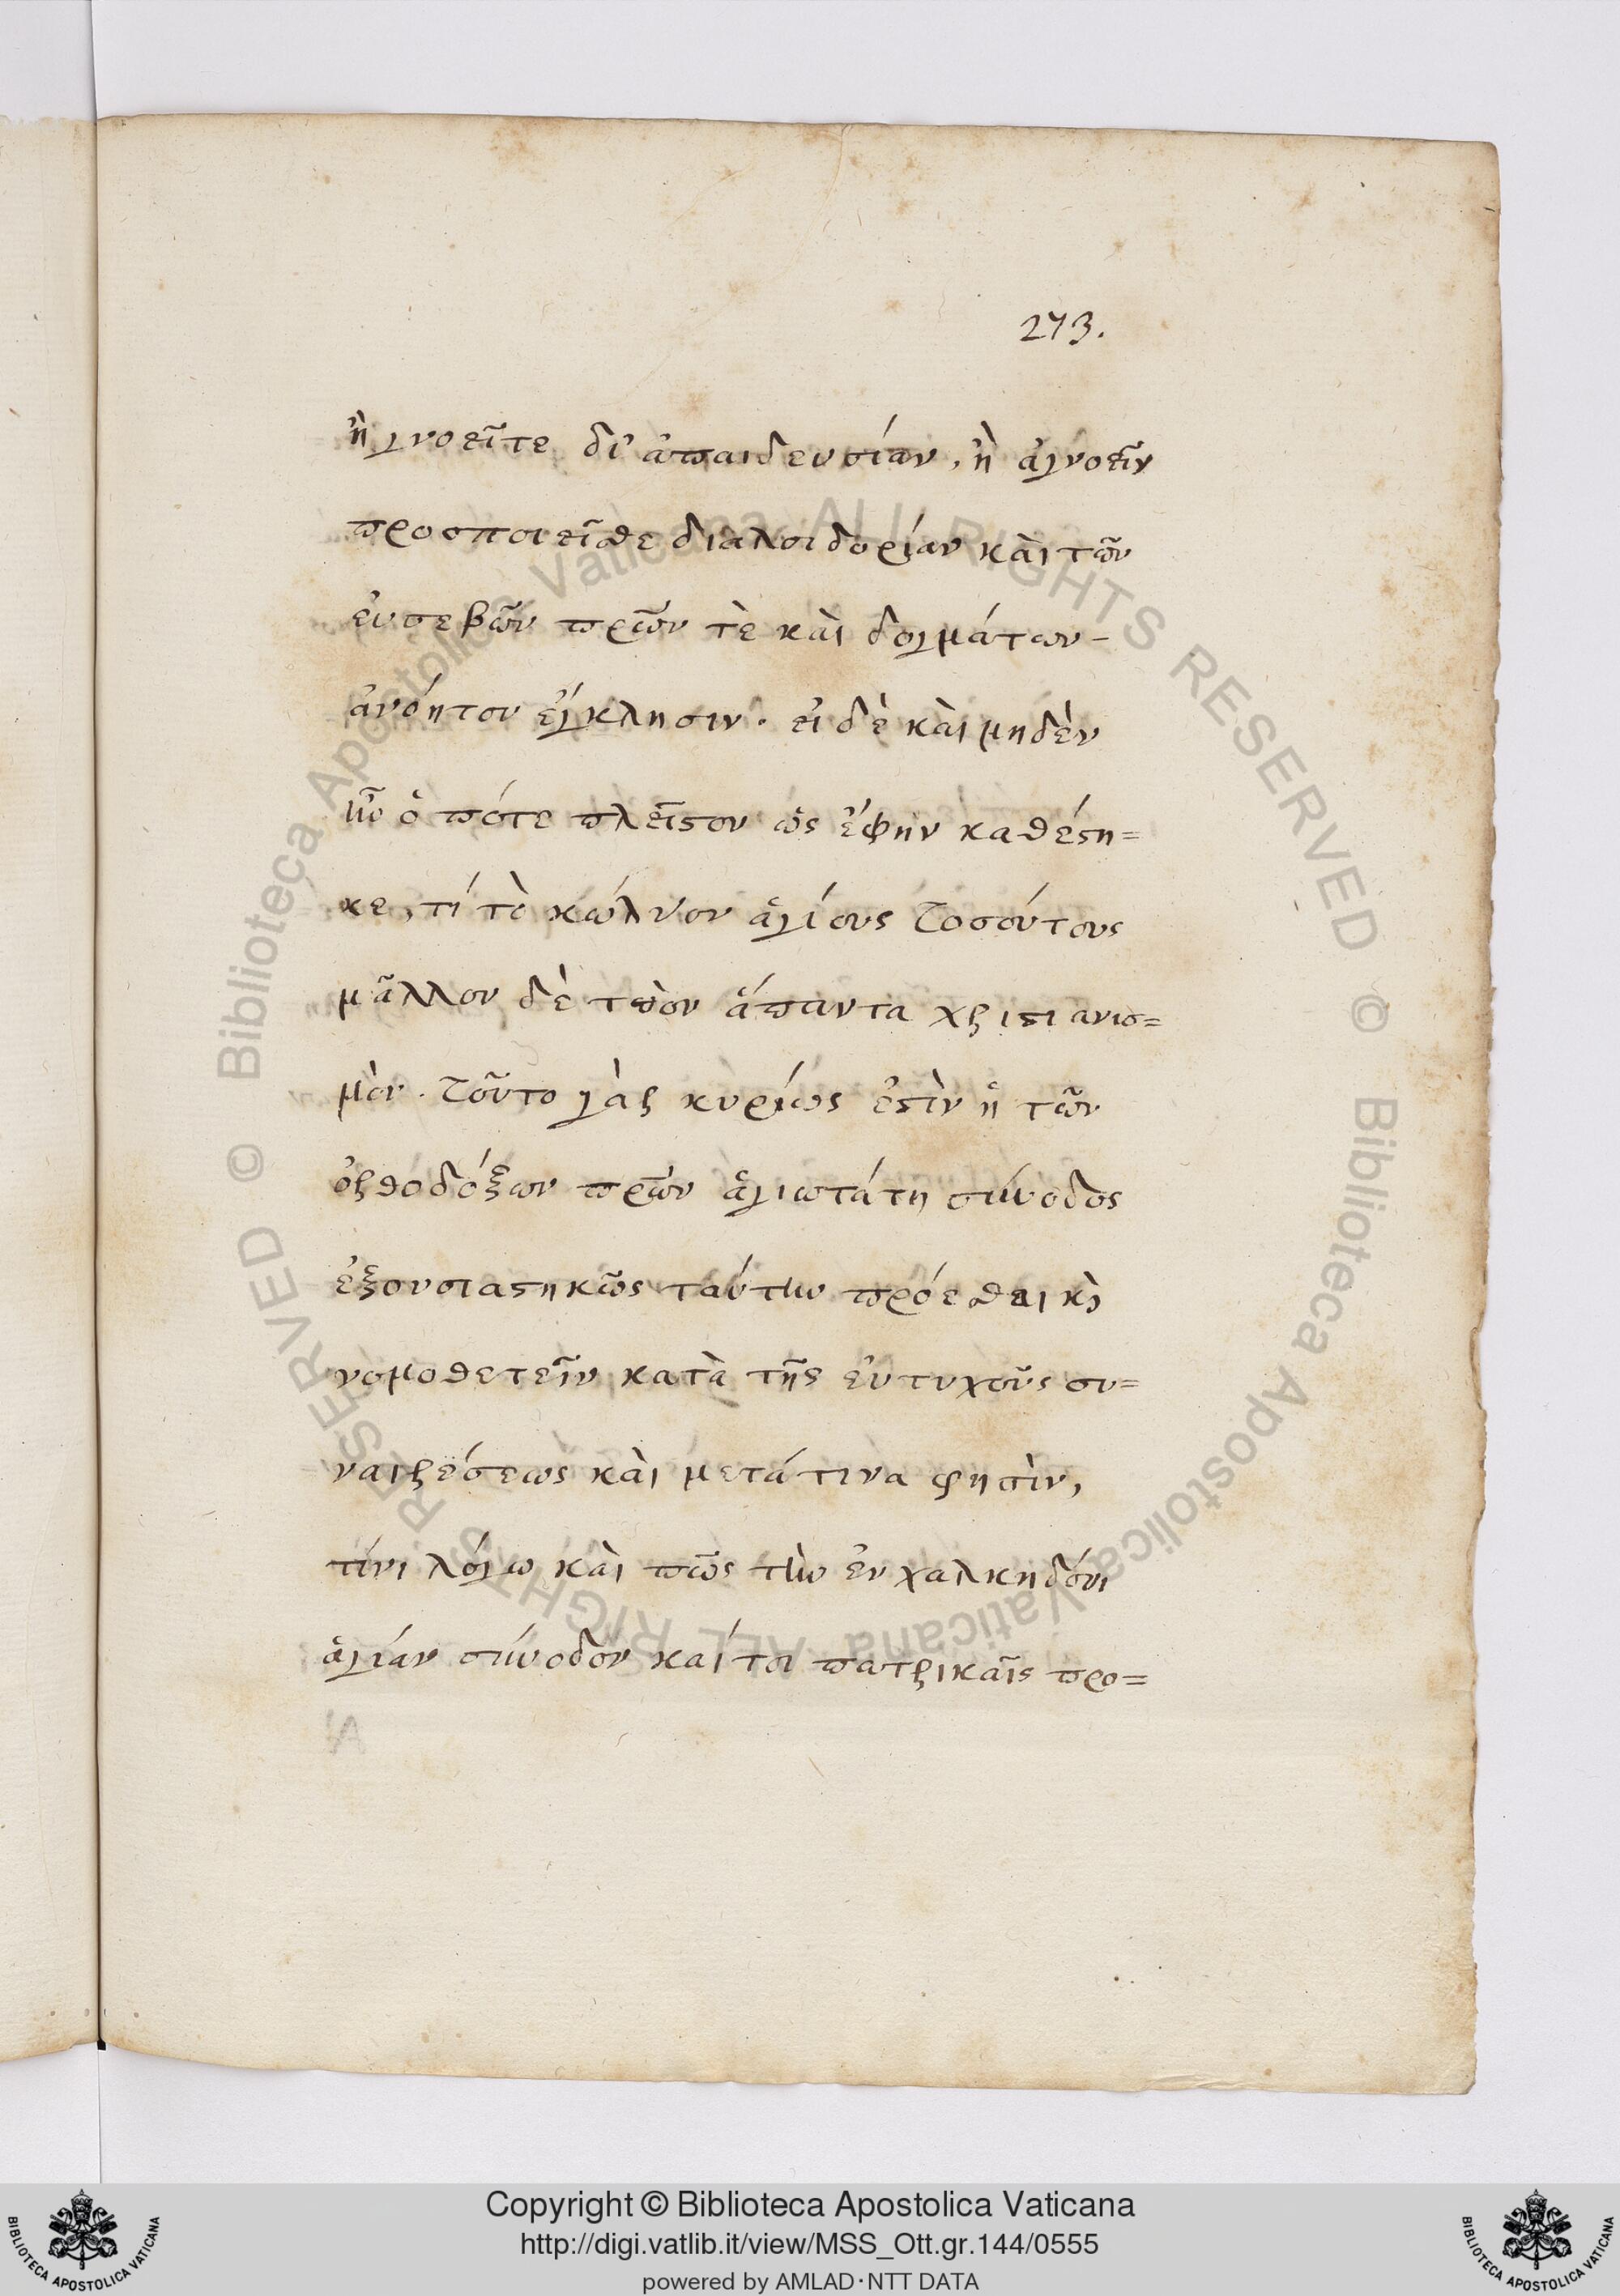 273.
ἢ γνοεῖτε δι' ἀπαιδευσίαν, ἢ ἀγνοεῖν
προσποιεῖσθε διαλοιδορίαν καὶ τῶν
εὐσεβῶν πρῶν τὲ καὶ δογμάτων-
ἀνόητον ἔγκλησιν. εἰ δὲ καὶ μηδὲν
ἦν ὁ πότε πλεῖστον ὡς ἔφην καθέστη=
κε, τί τὸ κώλυον ἁγίους τοσούτους
μᾶλλον δὲ τὸν ἅπαντα χριστιανισ=
μὸν. τοῦτο γὰρ κυρίως ἐστὶν ἡ τῶν
ὀρθοδόξων πρῶν ἁγιωτάτη σύνοδος
ἐξουσιαστηκῶς ταύτην πρόεσθαι κὶ
νομοθετεῖν κατὰ τῆς εὐτυχοῦς συ=
ναιρέσεως καὶ μετά τινα φησὶν,
τίνι λόγω καὶ πῶς τὴν ἐν χαλκηδόνι
ἁγίαν σύνοδον καί τοι πατρικαῖς προ=
Copyright © Biblioteca Apostolica Vaticana
http://digi.vatlib.it/view/MSS_Ott.gr.144/0555
powered by AMLAD·NTT DATA
BIBLIOTECA APOSTOLICA VATICANA
BIBLIOTECA APOSTOLICA VATICANA
© Biblioteca Apostolica Vaticana ALL RIGHTS RESERVED
© Biblioteca Apostolica Vaticana ALL RIGHTS RESERVED